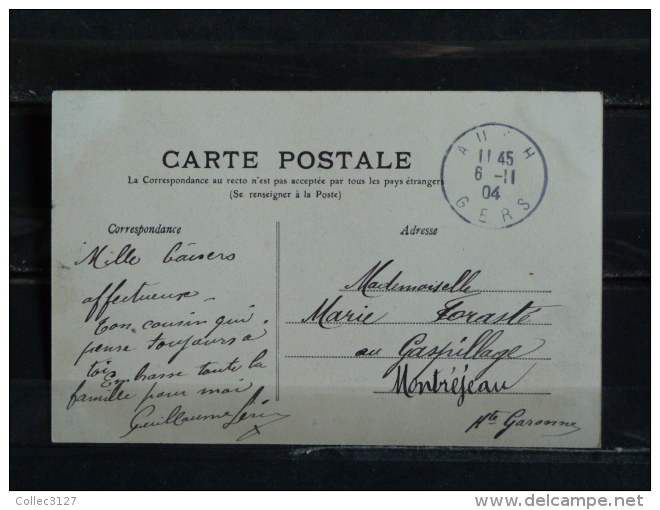 CARTE POSTALE
La Correspondance au recto n'est pas acceptée par tous les pays étrangers
(Se renseigner à la Poste)
AUCH
11 45
6 -11
04
GERS
Correspondance
Mille baisers
affectueux
Ton cousin qui
pense toujours à
toi
Embrasse toute la
famille pour moi
Guillaume
Adresse
Mademoiselle
Marie Forasté
au Gaspillage
Montréjeau
Hte Garonne
Collec3127
delcampe.net